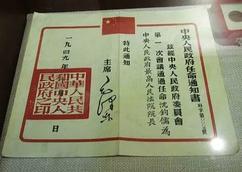 中央人民政府任命通知書
茲經中央人民政府委員會
第一次會議通過任命沈鈞儒為
中央人民政府最高人民法院院長
特此通知
主席
毛澤東
一九四九年
日
中華人民共
和國中央人
民政府之印